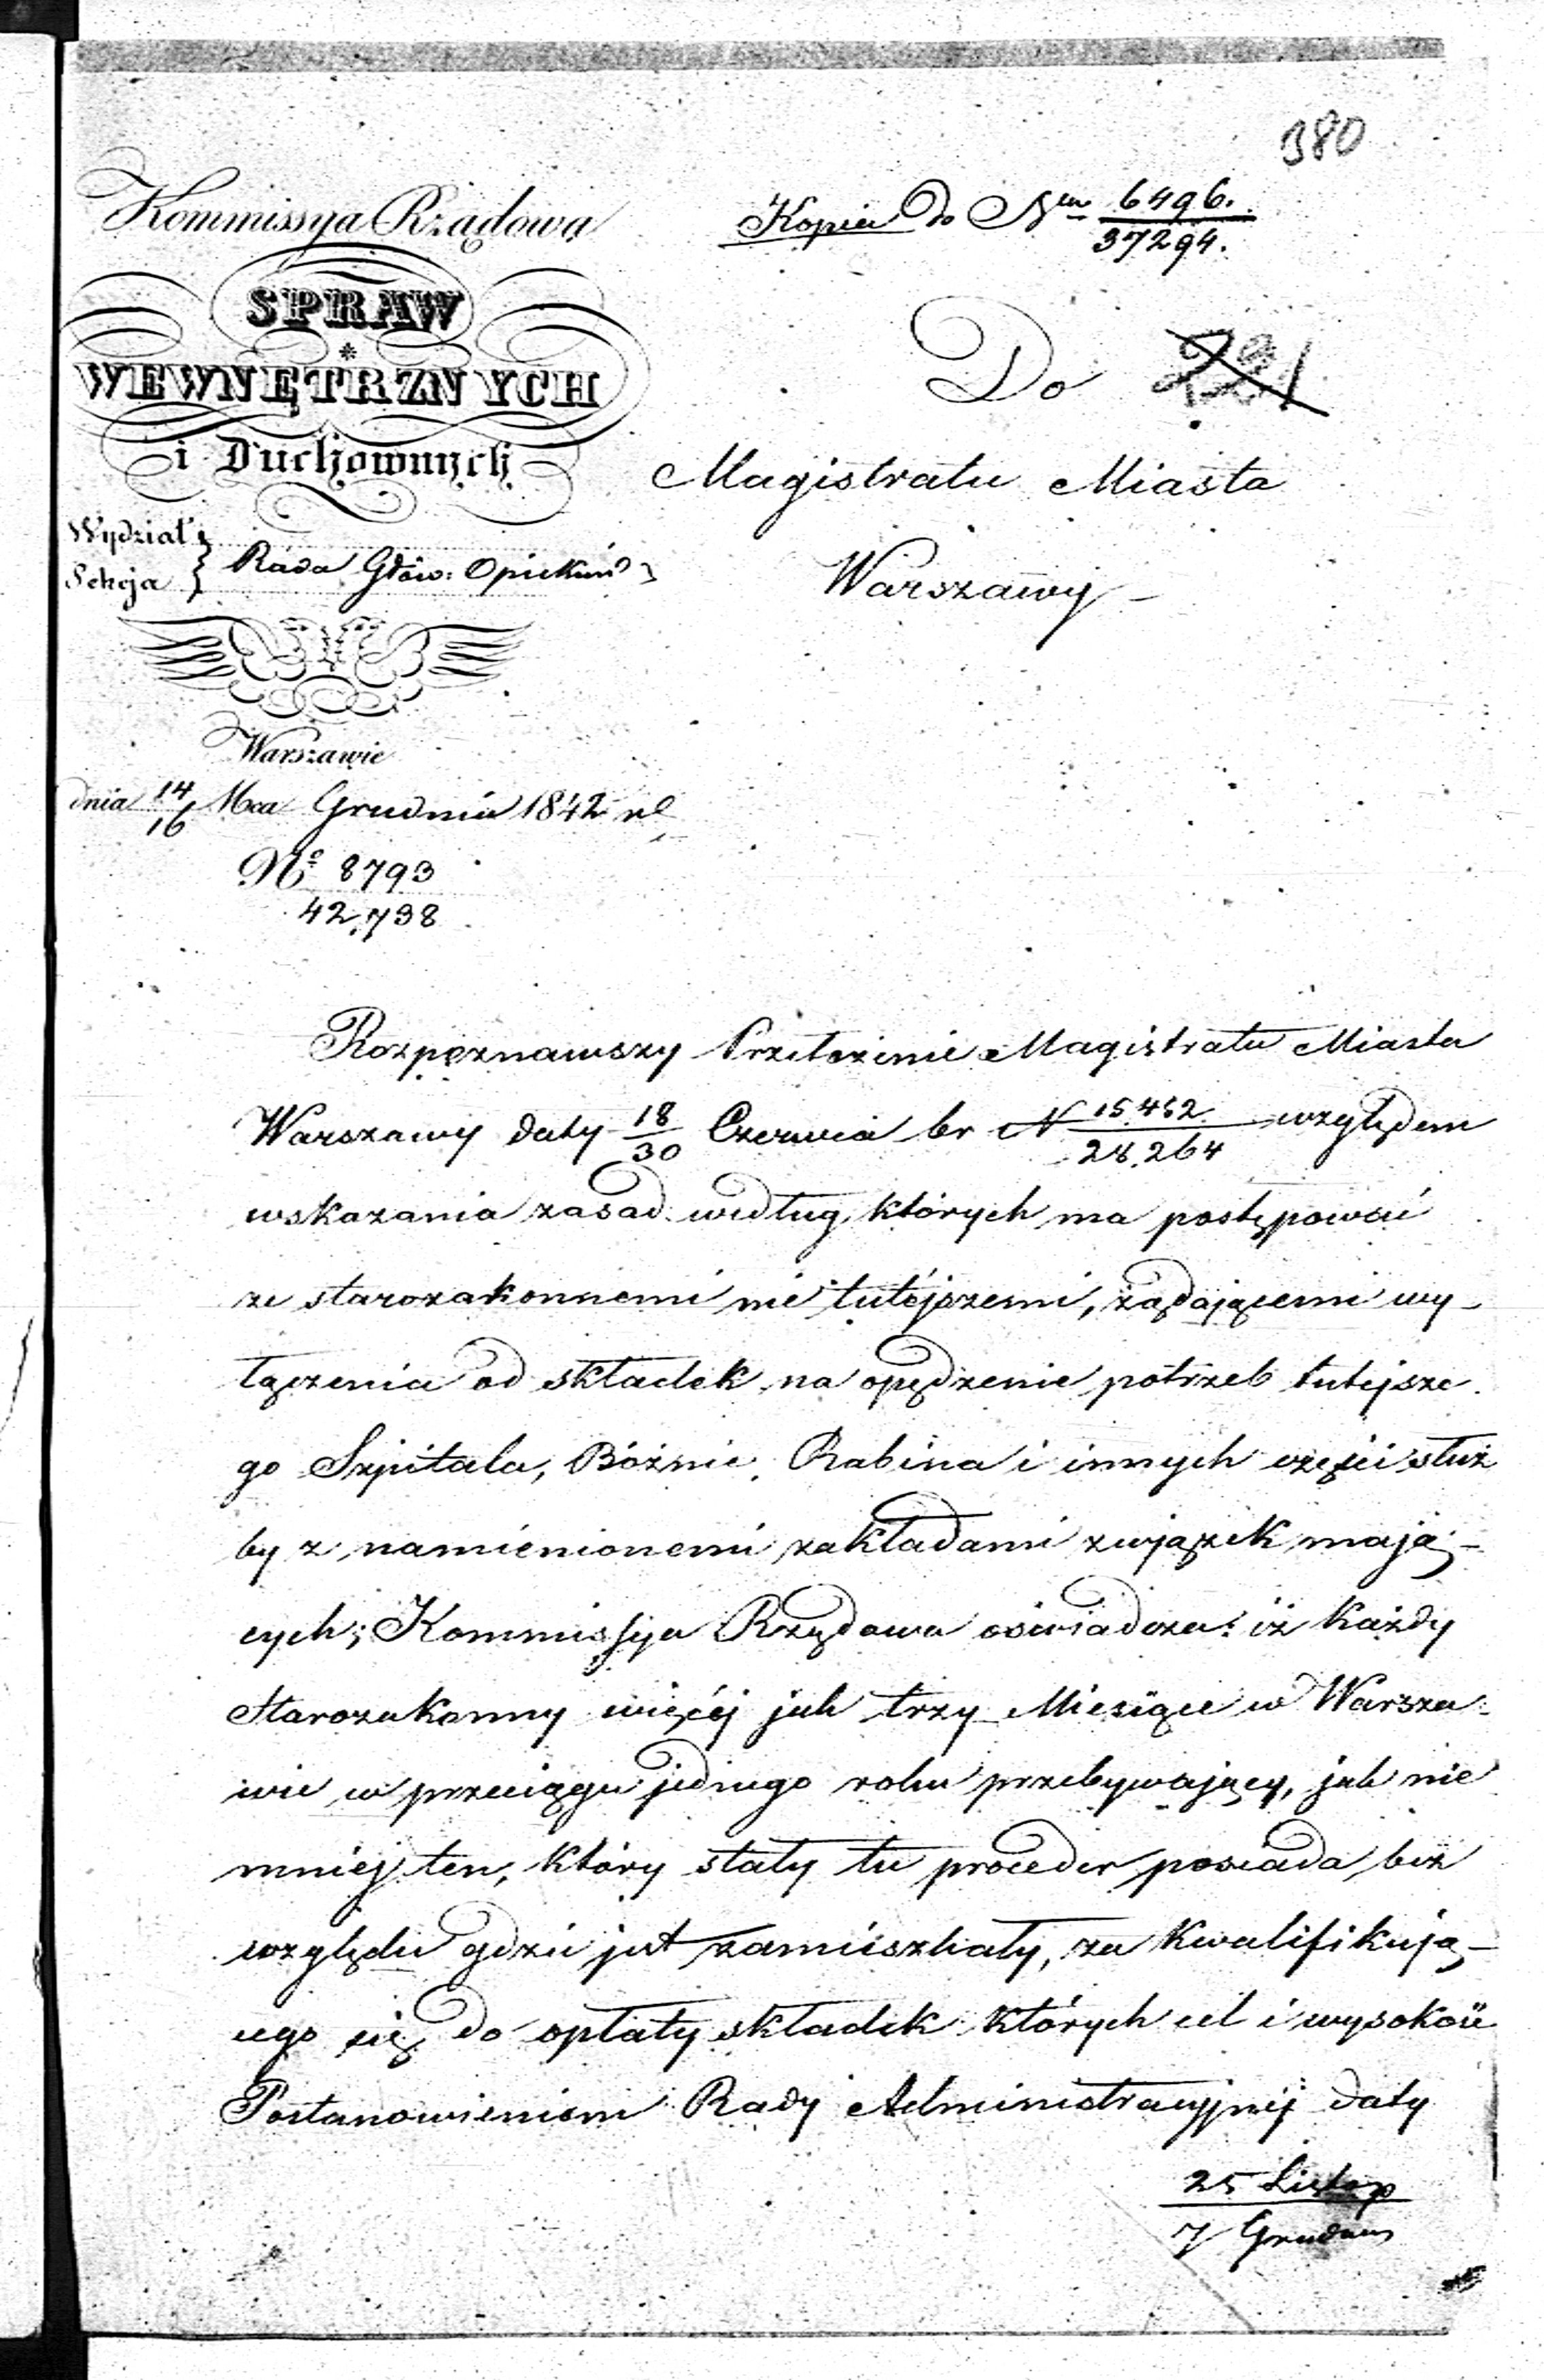 380
Kommissya Rządowa
SPRAW
WEWNĘTRZNYCH
i Duchownych
Wydział
Sekcja } Rada Głów: Opiekuń
Warszawie
dnia 14/16 Mca Grudnia 1842 rl
Nº 8793
42,738
Kopia do Nru 6496./37294.
Do
Magistratu Miasta
Warszawy
Rozpoznawszy Przełożenie Magistratu Miasta
Warszawy daty 18/30 Czerwca br N 15.452/28.264 względem
wskazania zasad według których ma postępować
ze starozakonnemi nie tutéjszemi, żądającemi wy-
łączenia od składek na opędzenie potrzeb tutejsze
go Szpitala, Bóżnic, Rabina i innych części służ
by z namienionemi zakładami związek mają-
cych; Kommissya Rządowa oświadcza: iż każdy
Starozakonny więcéj jak trzy Miesiące w Warsza-
wie w przeciągu jednego roku przebywający, jak nie
mniej ten, który stały tu proceder posiada bez
względu gdzie jest zamieszkały, za kwalifikują-
cego się do opłaty składek których cel i wysokość
Postanowieniem Rady Administracyjnéj daty
25 Listop
7 Grudnia